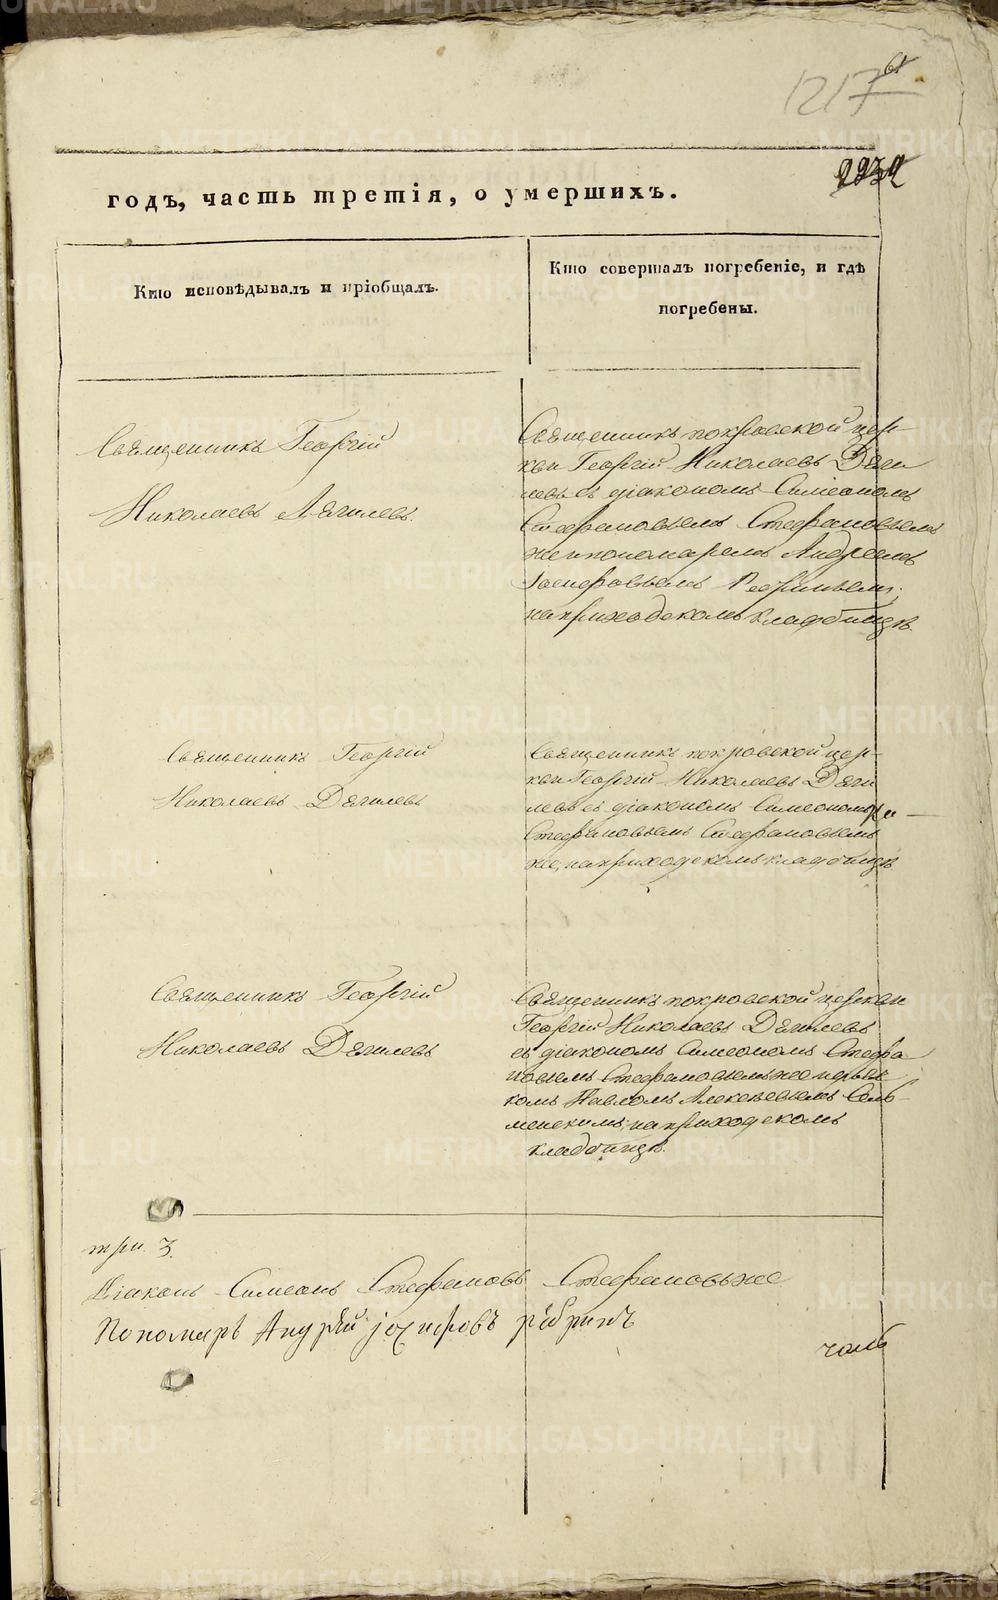 1217
годъ, часть третія, о умершихъ.
Кто исповѣдывалъ и пріобщалъ.
Кто совершалъ погребеніе, и гдѣ
погребены.
Священникъ Георгій
Николаевъ Дягилевъ.
Священникъ покровской цер-
кви Георгій Николаевъ Дяги
левъ съ діакономъ Симеономъ
Стефановымъ Стефановымъ
же и пономаремъ Андреемъ
Іосифовымъ
на приходскомъ кладбищѣ.
Священникъ Георгій
Николаевъ Дягилевъ
Священникъ покровской цер-
кви Георгій Николаевъ Дяги
левъ съ діакономъ Симеономъ
Стефановымъ Стефановымъ
же, на приходскомъ кладбищѣ.
Священникъ Георгій
Николаевъ Дягилевъ
Священникъ покровской церкви
Георгій Николаевъ Дягилевъ
съ діакономъ Симеономъ Стефа
новымъ Стефановымъ же и дьяч
комъ Павломъ Алексѣевымъ
на приходскомъ
кладбищѣ.
три. 3.
Діаконъ Симеонъ Стефановъ Стефановъ же
Пономарь Андрей Іосифовъ
METRIKI.GASO-URAL.RU